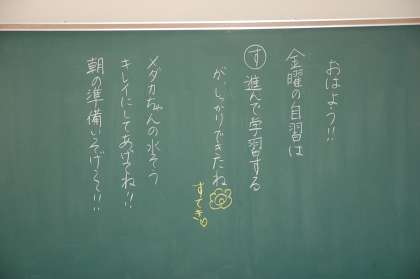 おはよう!!
金曜の自習は
す 進んで学習する
がしっかりできたね
すてき
メダカちゃんの水そう
キレイにしてあげてね!!
朝の準備いそげ〜!!